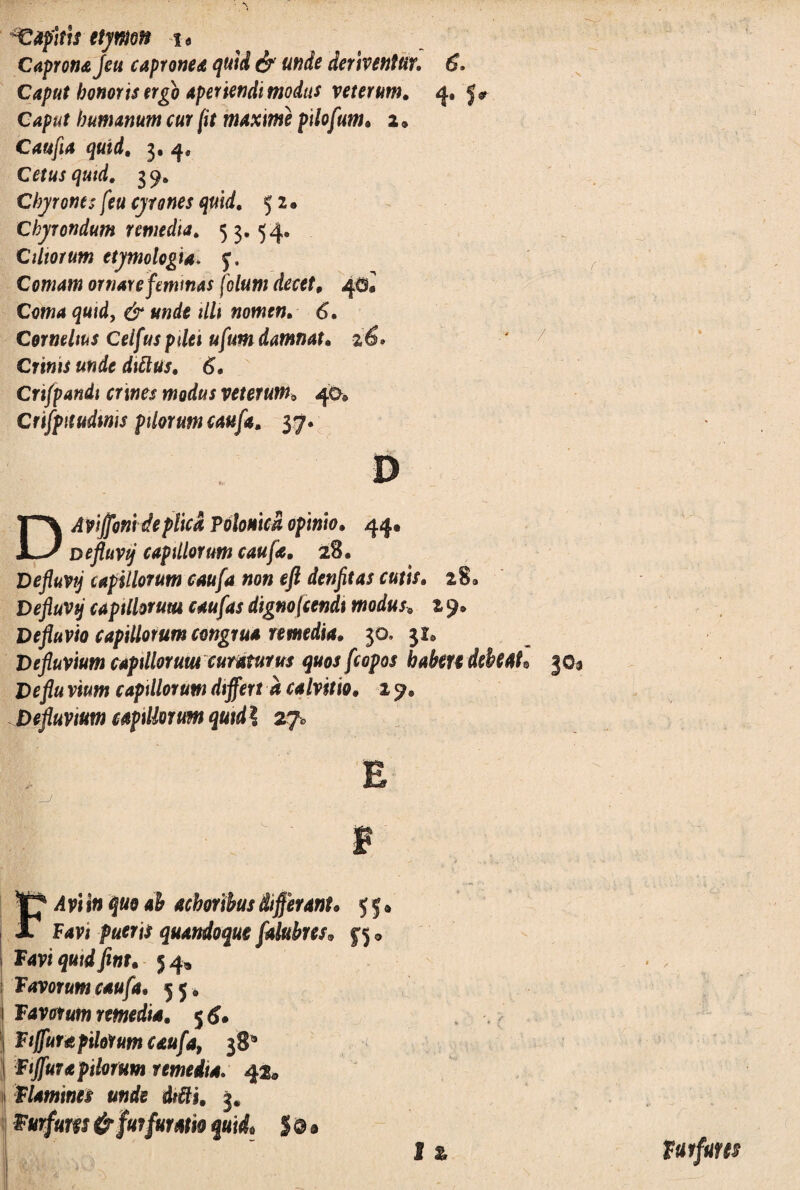 Capitis etymon 1.
Capronæ seu caproneæ quid & unde deriventur. 6.
Caput honoris ergò aperiendi modus veterum. 4. 5.
Caput humanum cur sit maximè pilosum. 2.
Causia quid. 3. 4.
Cetus quid. 39.
Chyrones seu cyrones quid. 52.
Chyrondum remedia. 53. 54.
Ciliorum etymologia. 5.
Comam ornare feminas solum decet. 40.
Coma quid, & unde illi nomen. 6.
Cornelius Celsus pilei usum damnat. 26.
Crinis unde dictus. 6.
Crispandi crines modus veterum. 40.
Crispitudinis pilorum causa. 37.
D
DAvissoni de plicâ Polonicâ opinio. 44.
Defluvij capillorum causæ. 28.
Defluvij capillorum causa non est densitas cutis. 28.
Defluvij capillorum causas dignoscendi modus. 29.
Defluvio capillorum congrua remedia. 30. 31.
Defluvium capillorum curaturus quos scopos habere debeat. 30.
Defluvium capillorum differt à calvitio. 29.
Defluvium capillorum quid? 27.
E
F
FAvi in quo ab achoribus differant. 55.
Favi pueris quandoque salubres. 55.
Favi quid sint. 54.
Favorum causa. 55.
Favorum remedia. 56.
Fissuræ pilorum causa, 38.
Fissuræ pilorum remedia. 42.
Flamines unde dicti. 3.
Furfures & furfuratio quid. 50.
I 2
Furfures